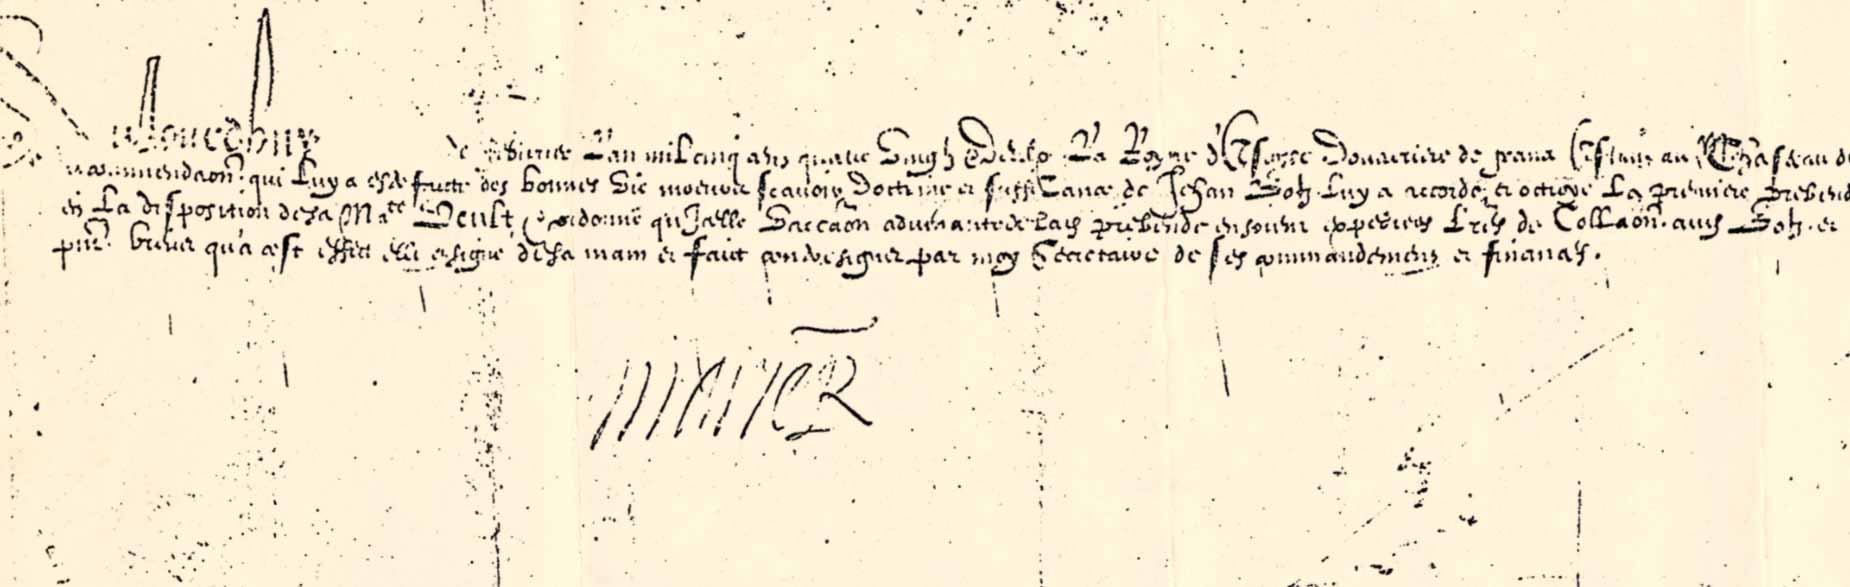 Aujourdhuy de febvrier L'an mil cinq cens quatre vingts Deux La Royne d'Escosse Douairiere de france Estant au Chasteau de
recommendaon. qui Luy a este faicte des bonnes vie moeurs scavoir Doctrine et suffisance de Jehan Bot. Luy a accorde et octroye La premiere prebende
en La disposition de sa Mate. Veult et ordonne qu'Icelle vaccaon advenante de lad prebende en soient expediees Lres de Collaon. aud Bot. et
pnt. brevet qu'a cest effect elle a signe de sa main et faict contresigner par moy Secretaire de ses commandemens et finances.